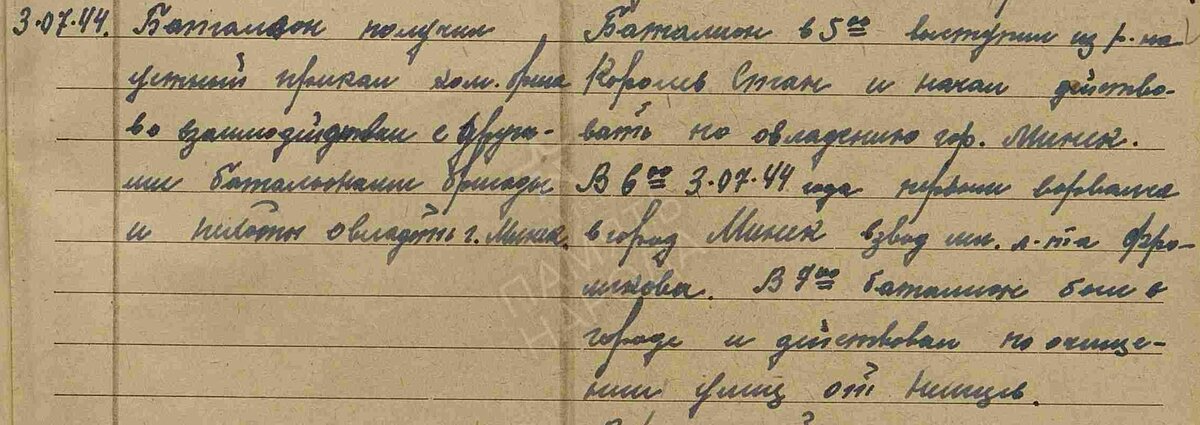 3.07.44.
Батальон получил
устный приказ ком. бриг.
во взаимодействии с други-
ми батальонами бригады
и пехоты овладеть г. Минск.
Батальон в 5⁰⁰ выступил из р-на
Королев Стан и начал действо-
вать по овладению гор. Минск.
В 6⁰⁰ 3.07.44 года первым ворвался
в город Минск взвод мл. л-та Фро-
ликова. В 9⁰⁰ батальон был в
городе и действовал по очище-
нии улиц от немцев.
ПАМЯТЬ
НАРОДА